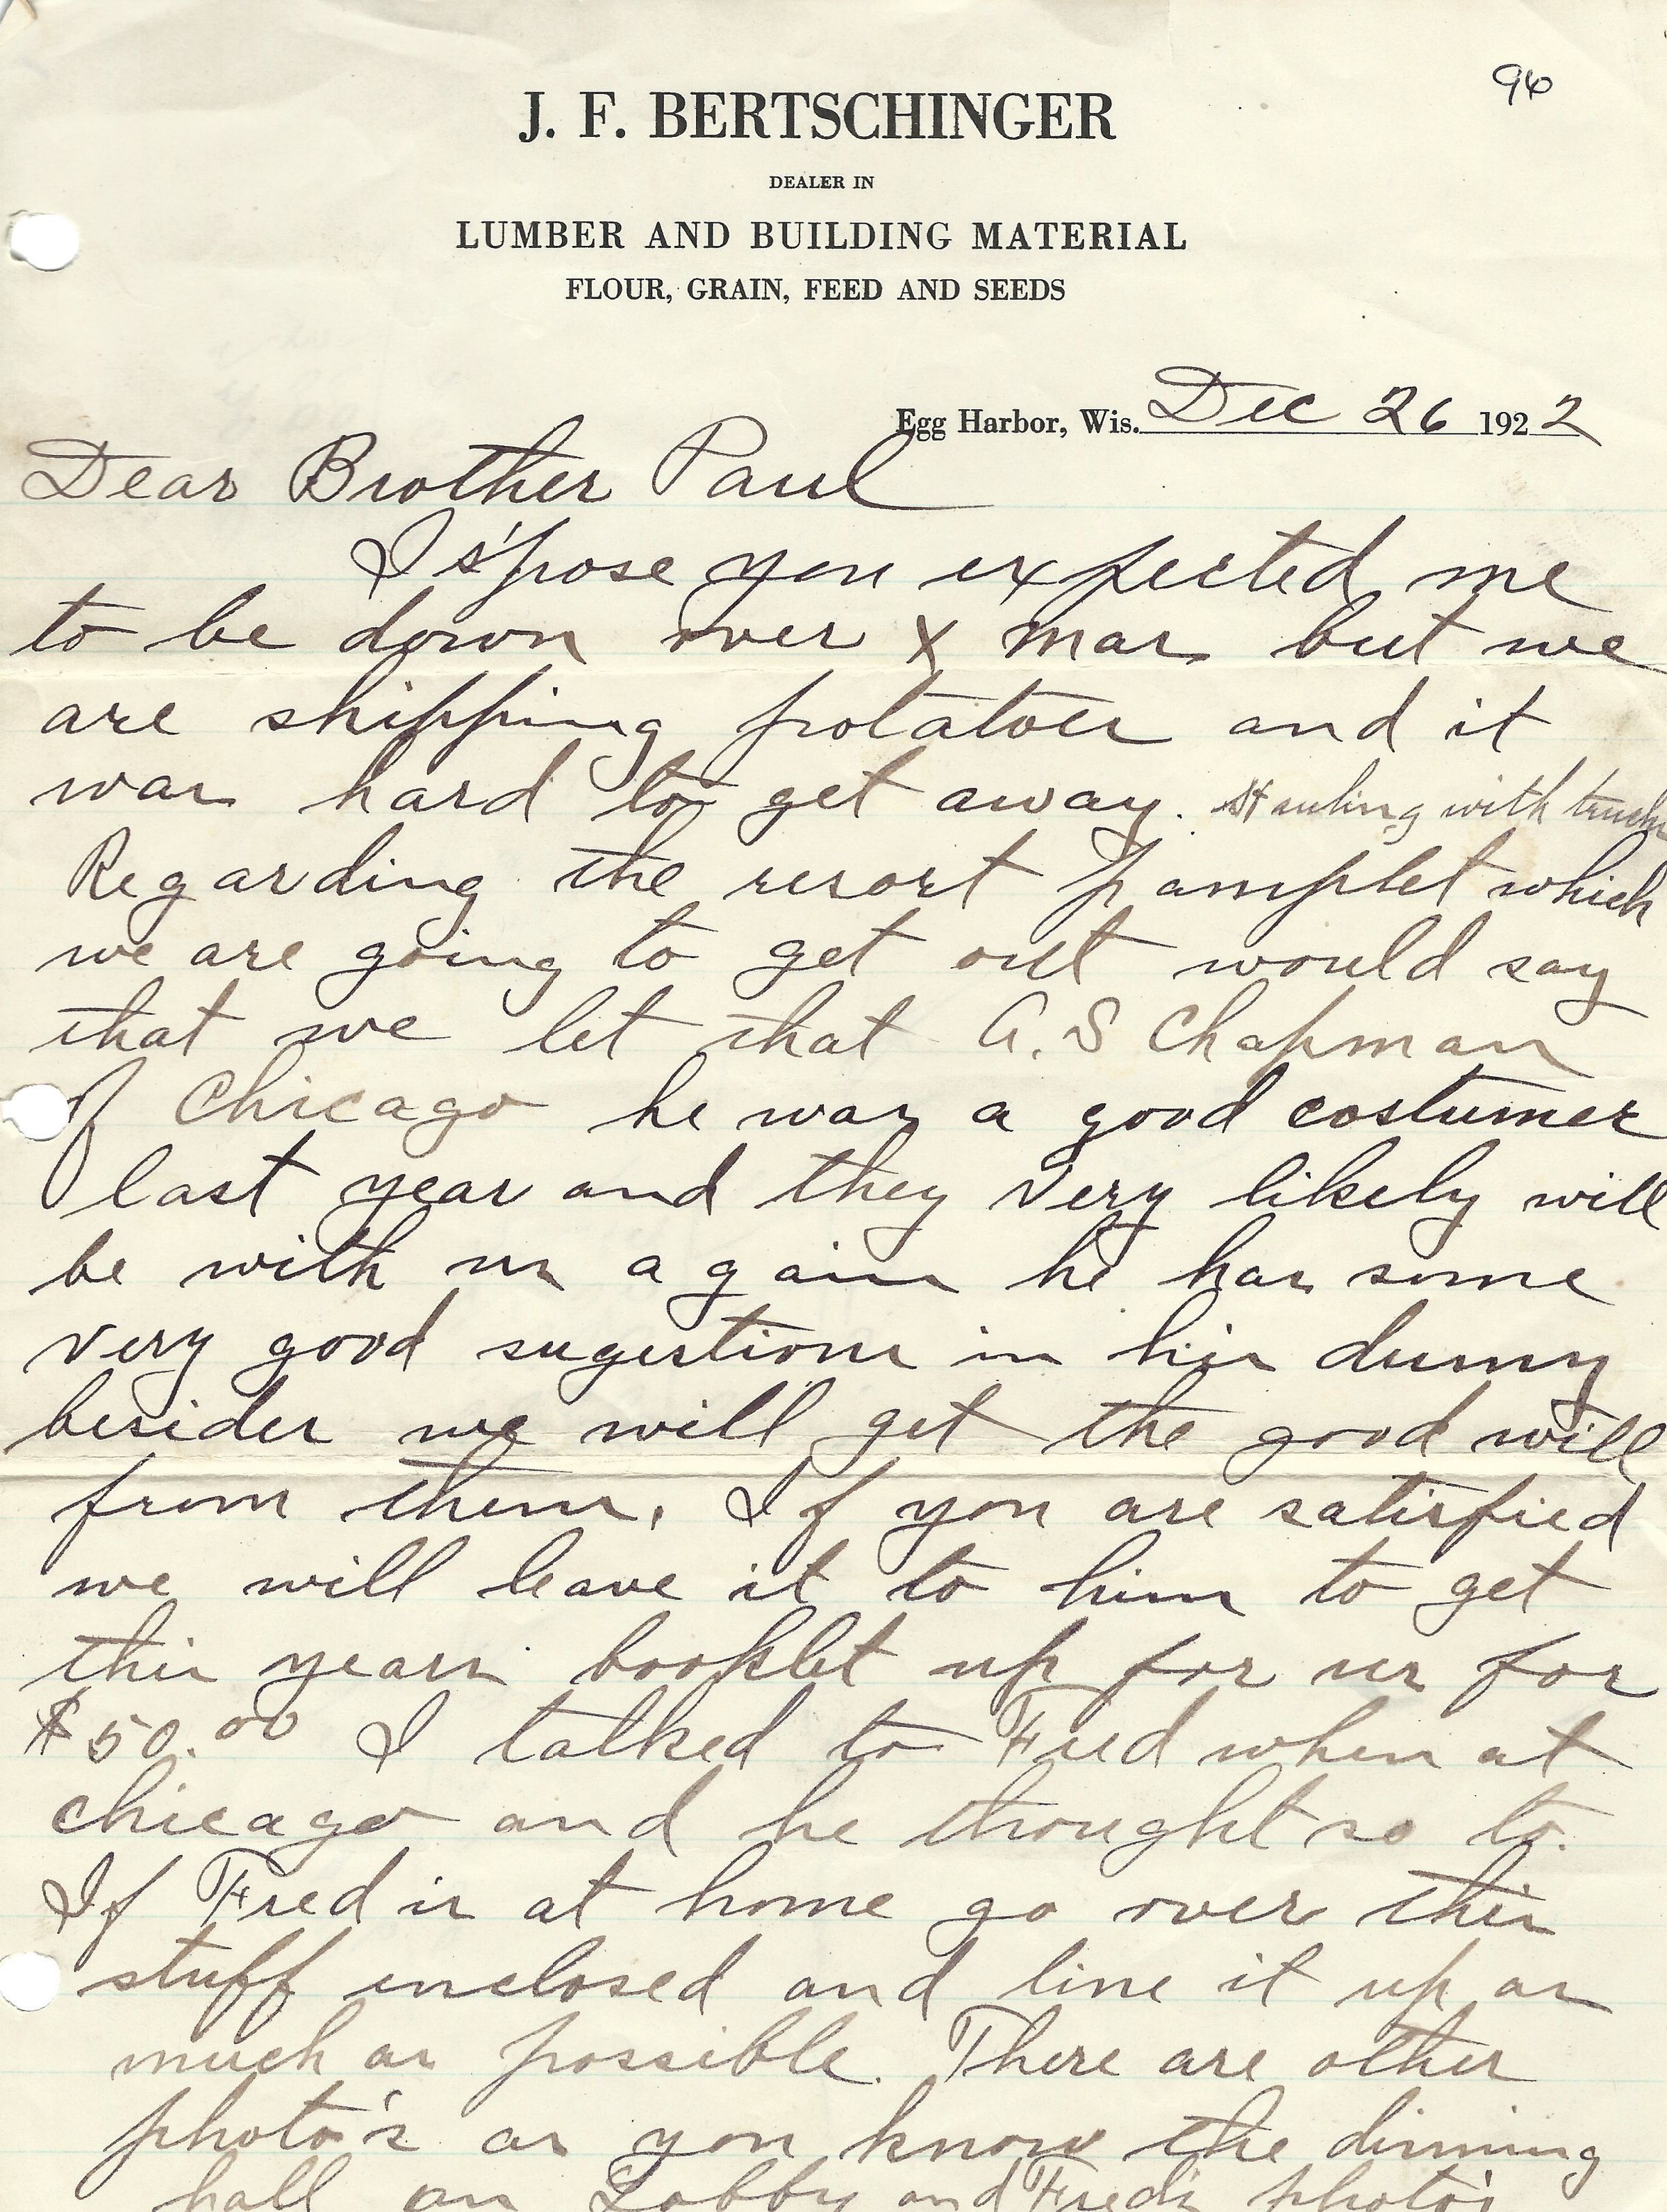 96
J. F. BERTSCHINGER
DEALER IN
LUMBER AND BUILDING MATERIAL
FLOUR, GRAIN, FEED AND SEEDS
Egg Harbor, Wis. Dec 26 1922
Dear Brother Paul
I s'pose you expected me
to be down over X mas but we
are shipping potatoes and it
was hard to get away. Hauling with truck
Regarding the resort pamplet which
we are going to get out would say
that we let that A. S Chapman
of Chicago he was a good costumer
last year and they very likely will
be with us again he has some
very good sugestions in his dumy
besides we will get the good will
from them. If you are satisfied
we will leave it to him to get
this years booklet up for us for
$50.00 I talked to Fred when at
chicago and he thought so to.
If Fred is at home go over this
stuff enclosed and line it up as
much as possible. There are other
photo's as you know the dinning
hall an Lobby and Freds photo's